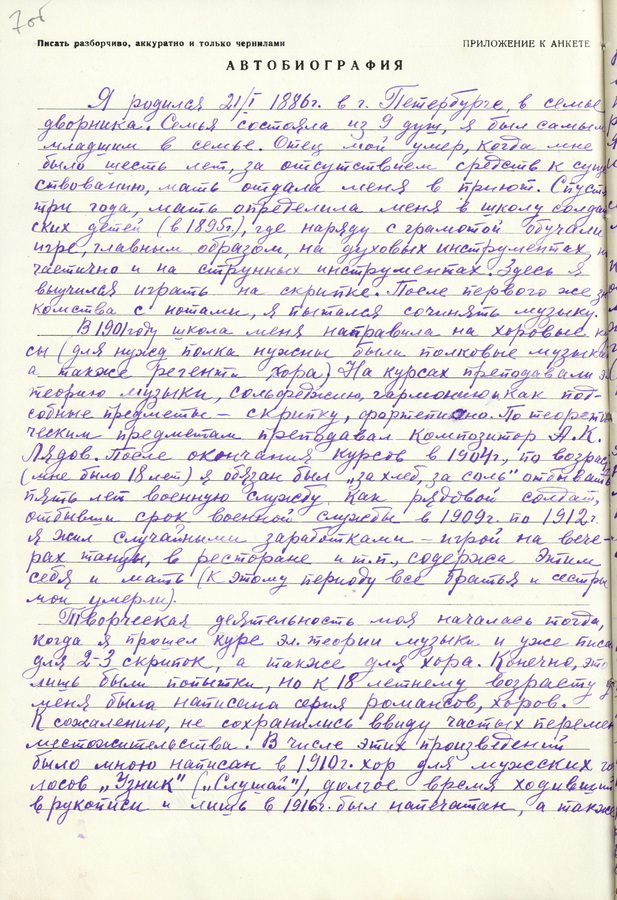 7об
Писать разборчиво, аккуратно и только чернилами
ПРИЛОЖЕНИЕ К АНКЕТЕ
АВТОБИОГРАФИЯ
Я родился 21/I 1886г. в г. Петербурге, в семье
дворника. Семья состояла из 9 душ, я был самым
младшим в семье. Отец мой умер, когда мне
было шесть лет, за отсутствием средств к суще
ствованию, мать отдала меня в приют. Спустя
три года, мать определила меня в школу солдат
ских детей (в 1895г.), где наряду с грамотой обучали
игре, главным образом, на духовых инструментах,
частично и на струнных инструментах. Здесь я
выучился играть на скрипке. После первого же зна
комства с нотами, я пытался сочинять музыку.
В 1901 году школа меня направила на хоровые кур
сы (для нужд полка нужны были полковые музыкан
а также регента хора) На курсах преподавали
теорию музыки, сольфеджио, гармонию, как под-
собные предметы – скрипку, фортепиано. По теорети
ческим предметам преподавал композитор А.К.
Лядов. После окончания курсов в 1904г., по возрас
(мне было 18 лет) я обязан был „за хлеб, за соль" отбывать
пять лет военную службу, как рядовой солдат,
отбывши срок военной службы – в 1909г. по 1912г.
я жил случайными заработками – игрой на вече-
рах танцы, в ресторане и т.п., содержа этим
себя и мать (к этому периоду все братья и сестры
мои умерли).
Творческая деятельность моя началась тогда,
когда я прошел курс эл. теории музыки и уже писа
для 2-3 скрипок, а также для хора. Конечно, это
лишь были попытки, но к 18 летнему возрасту у
меня была написана серия романсов, хоров.
К сожалению, не сохранились ввиду частых перемен
местожительства. В числе этих произведений
было мною написан в 1910г. хор для мужских го
лосов „Узник" („Слушай"), долгое время ходивший
в рукописи и лишь в 1916г. был напечатан, а также